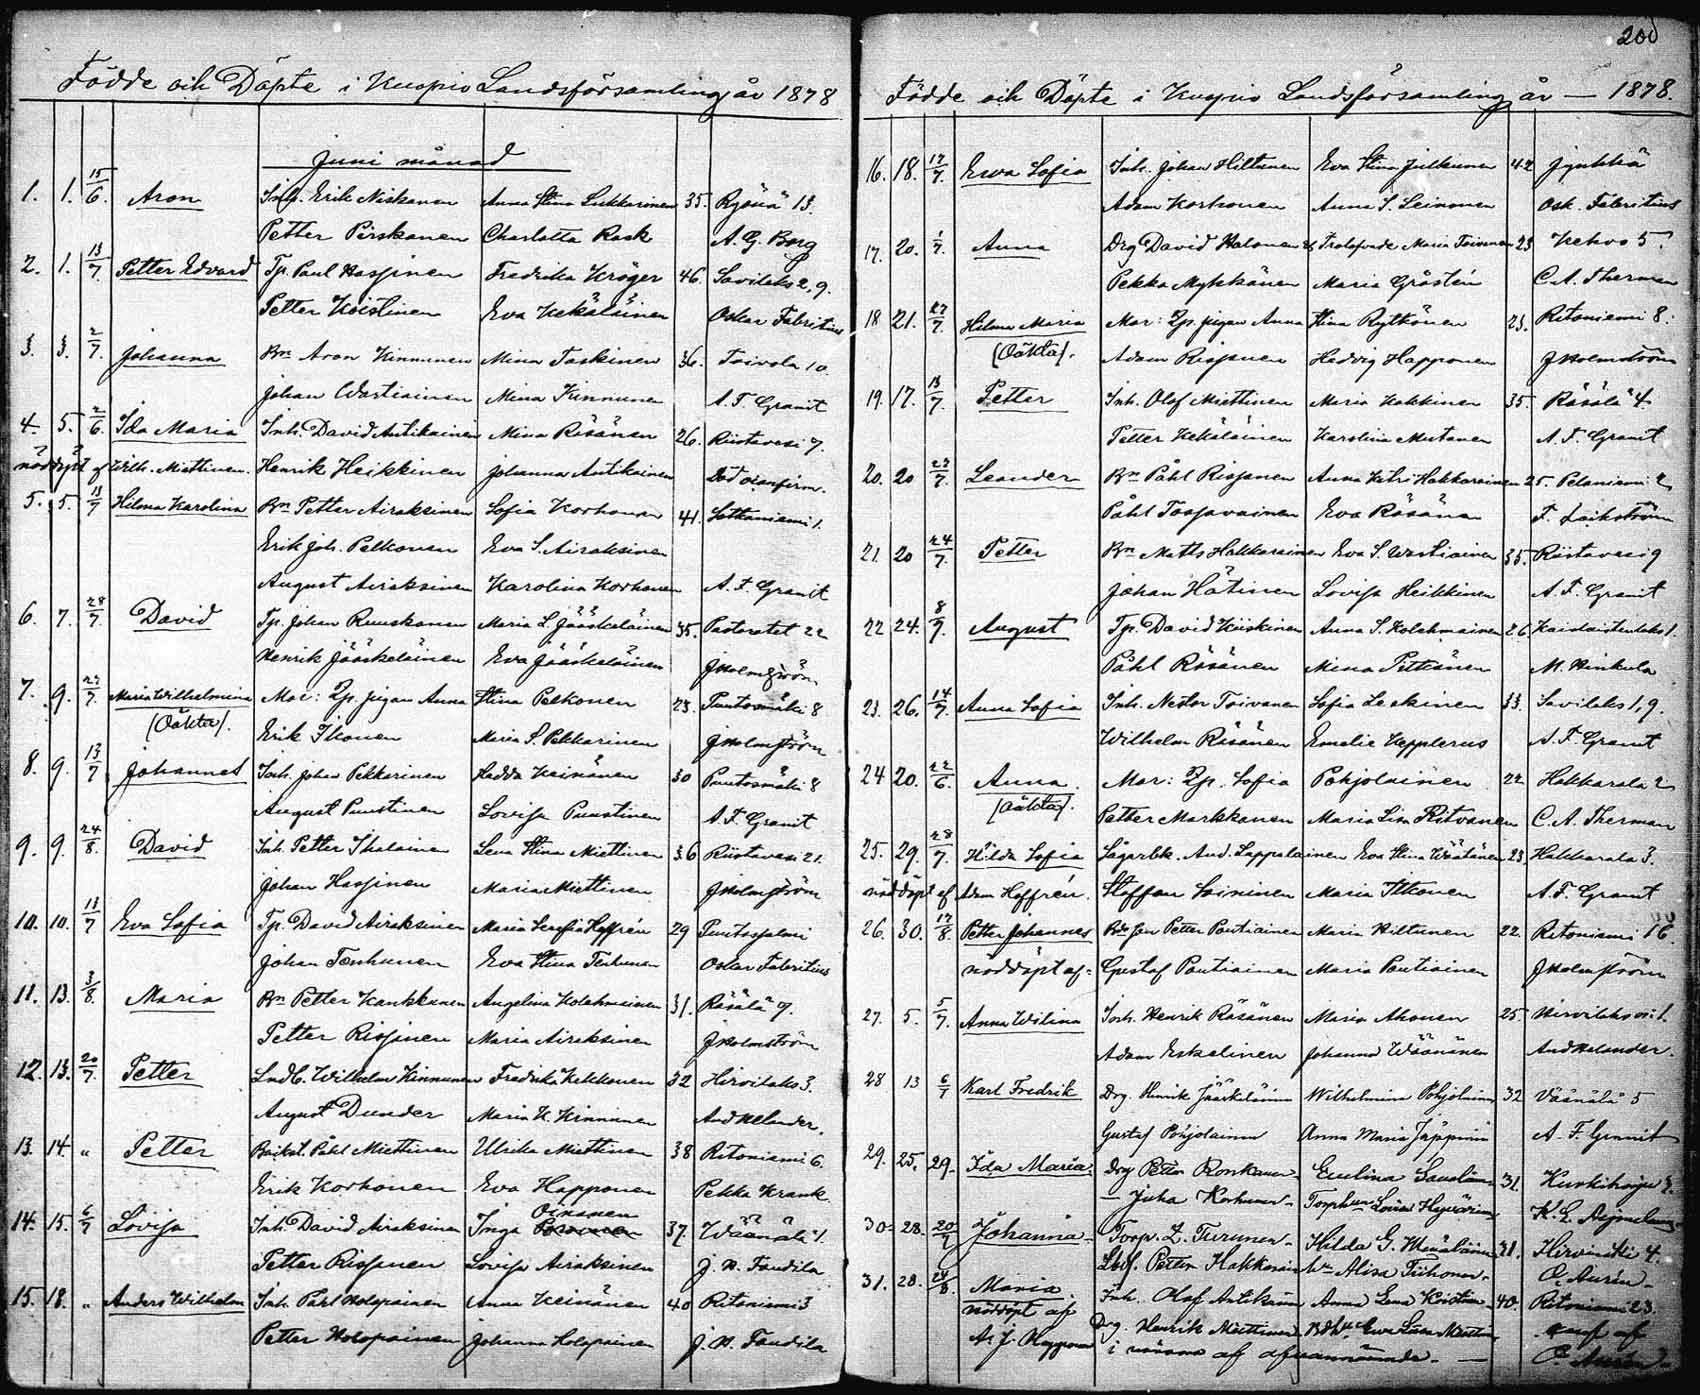 Födde och Döpte i Kuopio Landsförsamling år 1878
Juni månad
1. 1. 15/6. Aron Inh. Erik Niskanen Anna Stina Lukkarinen 35. Ryönä 13.
Petter Pirskanen Charlotta Rask A. G. Borg
2. 1. 13/7. Petter Edvard Tp. Paul Hassinen Fredrika Kröger 46. Savilaks 2, 9.
Petter Koistinen Eva Kekäläinen Oskar Fabritius
3. 3. 2/7. Johanna Bn Aron Kinnunen Mina Taskinen 36. Toivola 10
Johan Wartiainen Mina Kinnunen A. F. Granit
4. 5. 2/6. Ida Maria Inh. David Antikainen Mina Räsänen 26. Riistavesi 7.
nöddöpt af Wilh. Miettinen. Henrik Heikkinen Johanna Antikainen Död oconfirm.
5. 5. 13/7 Hilma Karolina Bn Petter Airaksinen Sofia Korhonen 41. Sotkaniemi 1.
Erik Joh. Pelkonen Eva S. Airaksinen
August Airaksinen Karolina Korhonen A. F. Granit
6. 7. 28/7. David Tp. Johan Ruuskanen Maria L. Jääskeläinen 35. Pastoratet 22
Henrik Jääskeläinen Eva Jääskeläinen J Holmström
7. 9. 27/7. Maria Wilhelmina Mor: Lp. pigan Anna Stina Pelkonen 23. Puutosmäki 8
(Oäkta). Erik Ikonen Maria S. Pekkarinen J Holmström
8. 9. 13/7 Johannes Inh. Johan Pekkarinen Hedda Keinänen 30 Puutosmäki 8
August Puustinen Lovisa Puustinen A. F. Granit
9. 9. 24/8. David Inh. Petter Ihalainen Lena Stina Miettinen 36 Riistavesi 21.
Johan Hassinen Maria Miettinen J Holmström
10. 10. 13/7 Eva Sofia Tp. David Airaksinen Maria Serafia Hoffrén 29 Puutossalmi
Johan Tenhunen Eva Stina Tenhunen Oskar Fabritius
11. 13. 3/8. Maria Bn Petter Kankkunen Angelina Kolehmainen 31. Räsälä 9.
Petter Rissanen Maria Airaksinen J Holmström
12. 13. 20/7. Petter Lndb. Wilhelm Kinnunen Fredrika Kekkonen 32 Hirvilaks 3.
August Dunder Maria K. Kinnunen And Melander.
13. 14. " Petter Bakst. Påhl Miettinen Ulrika Miettinen 38 Ritoniemi 6.
Erik Korhonen Eva Happonen Pekka Krank
14. 15. 6/7 Lovisa Inh. David Airaksinen Inga Oinonen 37. Wäänälä 1.
Petter Rissanen Lovisa Airaksinen J. H. Taudila
15. 18. " Anders Wilhelm Inh. Påhl Holopainen Anna Keinänen 40 Ritoniemi 3
Petter Holopainen Johanna Holopainen J. H. Taudila
200
Födde och Döpte i Kuopio Landsförsamling år — 1878.
16. 18. 17/7. Ewa Sofia Inh. Johan Hiltunen Eva Stina Julkunen 42 Jynkkä
Adam Korhonen Anna S. Leinonen Osk. Fabritius
17. 20. 1/7. Anna Drg David Halonen Maria Toivanen 23 Kehvo 5.
Pekka Mykkänen Maria Grästén C. A. Therman
18 21. 27/7. Hilma Maria Mor: Lp. pigan Anna Stina Rytkönen 23. Ritoniemi 8.
(Oäkta). Adam Rissanen Hedvig Happonen J Holmström
19. 17. 13/7. Petter Inh. Olof Miettinen Maria Kokkinen 35. Räsälä 4
Petter Kekäläinen Karolina Mustonen A. F. Granit
20. 20 27/7. Leander Bn Påhl Rissanen Anna Katri Hakkarainen 25. Pelaniemi 2
Påhl Tossavainen Eva Räsänen F. Laikström
21. 20 24/7. Petter Bn Matts Hakkarainen Eva S. Wartiainen 35. Riistavesi 9
Johan Hätinen Lovisa Heikkinen A. F. Granit
22 24. 8/7. August Tp. David Kiiskinen Anna S. Kolehmainen 26. 
Påhl Räsänen Mina Pitkänen M. Hinkula
23. 26. 14/7. Anna Sofia Inh. Nestor Toivanen Sofia Leskinen 33. Savilaks 1, 9.
Wilhelm Räsänen Emelie Kepplerus A. F. Granit
24 20. 22/6. Anna Mor: Lp. Sofia Pohjolainen 22 Hakkarala 2
(Oäkta). Petter Markkanen Maria Lisa Ritvanen C. A. Therman
25. 29. 28/7. Hilda Sofia And. Lappalainen Eva Stina Väätänen 23 Hakkarala 3.
nöddöpt af Adam Hoffrén. Staffan Soininen Maria Ikonen A. F. Granit
26. 30. 17/8. Petter Johannes Petter Pontiainen Maria Hiltunen 22. Ritoniemi 16
nöddöpt af = Gustaf Pontiainen Maria Pontiainen J Holmström
27. 5. 5/7. Anna Wilina Inh. Henrik Räsänen Maria Ahonen 25. 
Adam Eskelinen Johanna Wäänänen And Melander.
28 13 6/7 Karl Fredrik Drg. Henrik Jääskeläinen Wilhelmina Pohjolainen 32 Väänälä 5
Gustaf Pohjolainen Anna Maria Jäppinen A. F. Granit
29. 25. 29 Ida Maria Drg Petter Ronkanen 31.
Juha Korhonen Lovisa Hyvärinen
30. 28. 20/7 Johanna Torp. Z. Turunen Hilda G. 31. Hirvimäki 4.
Petter Hakkarainen Alisa Tiihonen O. Aurén
31. 28. 24/8. Maria Inh. Olof Antikainen Anna Lena Koistinen 40. Ritoniemi 23.
nöddöpt af Drg. Henrik Miettinen
A. J. Happonen i närvaro af ofvannämnde. — O. Aurén